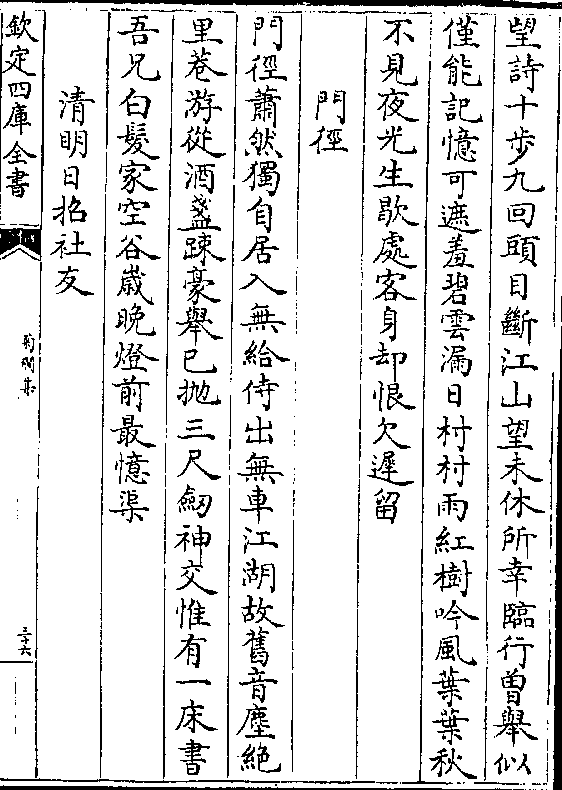 望詩十步九回頭目斷江山望未休所幸臨行曽舉似
僅能記憶可遮羞碧雲漏日村村雨紅樹吟風葉葉秋
不見夜光生歇處客身却恨欠遲留
門徑
門徑蕭然獨自居入無給侍出無車江湖故舊音塵絶
里巷游從酒盞踈豪舉已抛三尺劒神交惟有一床書
吾兄白髪家空谷嵗晚燈前最憶渠
清明日招社友
欽定四庫全書
菊磵集
三十六